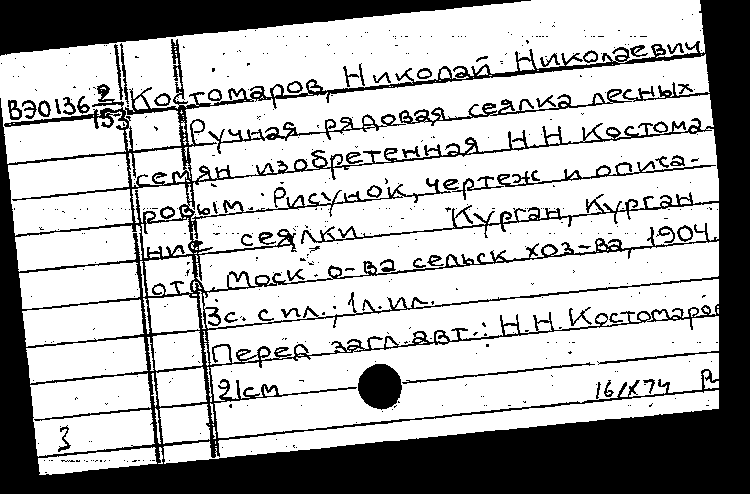 ВЭ0136 2/153 Костомаров, Николай Николаевич
Ручная рядовая сеялка лесных
семян изобретенная Н.Н. Костома-
ровым. Рисунок, чертеж и описа-
ние сеялки. Курган, Курган
отд. Моск. о-ва сельск. хоз-ва, 1904.
3с. с ил.; 1л. ил.
Перед загл. авт.: Н.Н. Костомаров
21см
16/X74
3